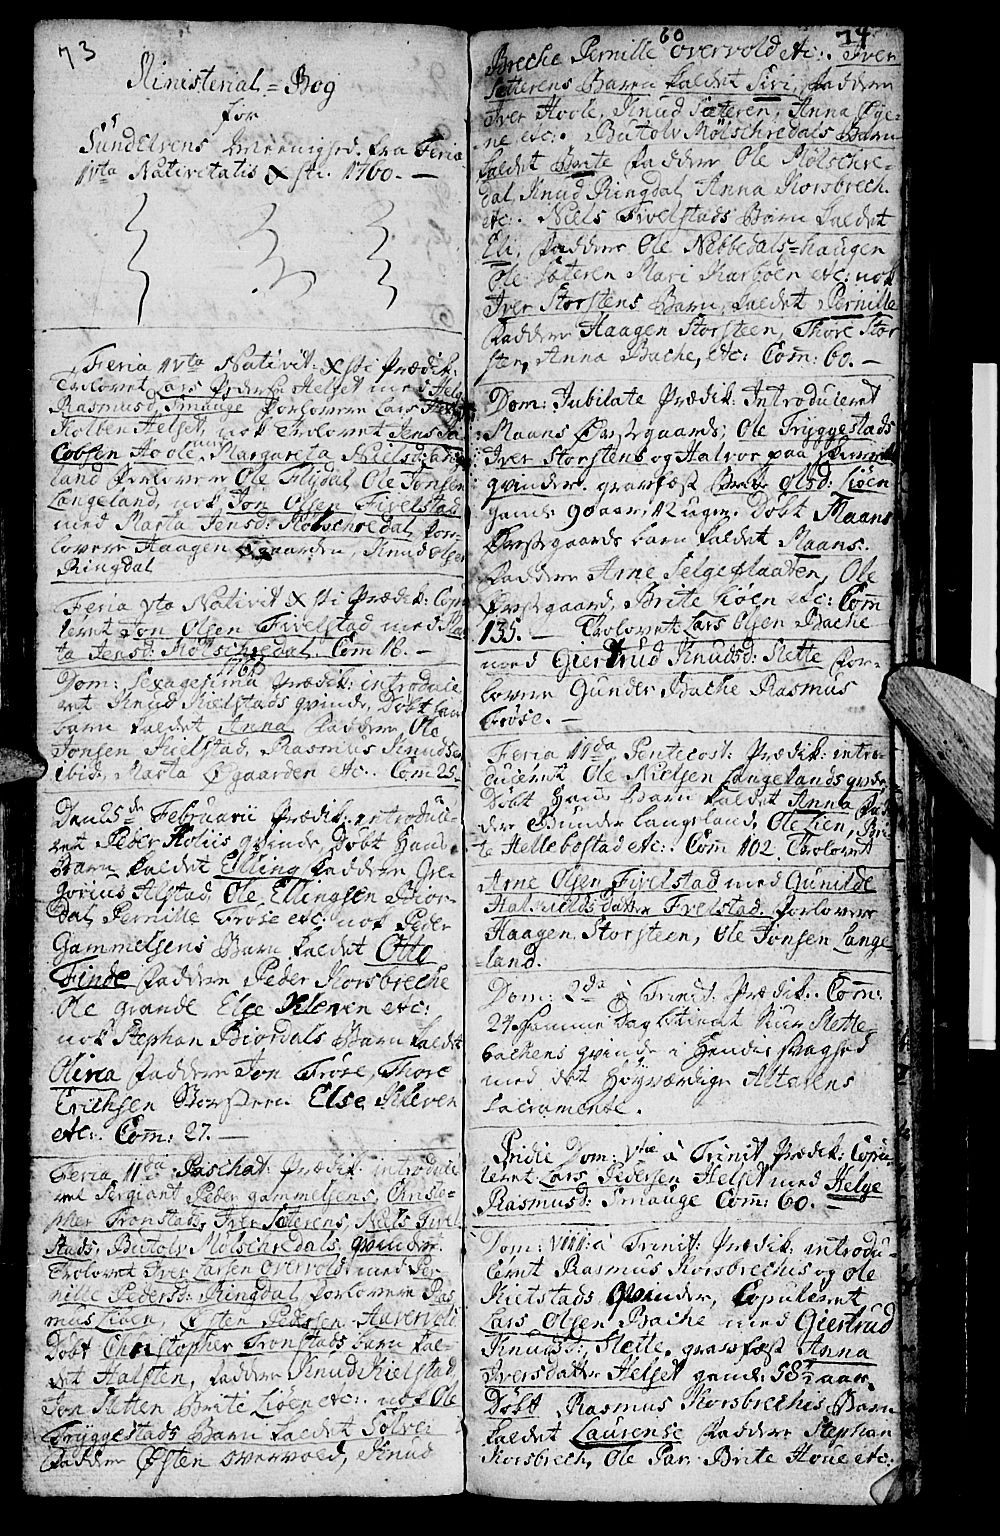 73
Ministerial=Bog
for
Sundelvens Meenighed fra Feria
IVta Nativitatis Xsti. 1760.
Feria IVta Nativit: Xsti Prædik:
Trolovet Lars Peders: Helset med Helge
Rasmusd, Smauge forlovere Lars
Helset, nok Trolovet Jens Ja-
cobsen Hoole med Margareta Nielsd:
land forlovere Ole Flydal Ole Jonsen
Langeland, nok Jon Olsen Fivelstad
med Marta Jensd: Mölschredal, for-
lovere Haagen Øgaarden, Knud Olsen
Ringdal
Feria Vta Nativit Xsti Prædik: Copu-
leret Jon Olsen Fivelstad med Mar-
ta Jensd: Mölschredal. Com 18.
1760
Dom: Sexagesima Prædik: introduce-
ret Knud Kielstads qvinde, Döbt hans
barn kaldet Anna faddere Ole
Jonsen Kielstad, Rasmus Knudsen
ibid, Marta Øgaarden etc. Com 25.
Den 25de Februarii Prædik: introduce-
ret Peder Holiis qvinde, Döbt Hans
Barn kaldet Elling faddere Gre-
gorius Alstad, Ole Ellingsen Bior-
dal, Pernille Fröse etc: nok Peder
Gammelsens Barn kaldet Otte
Finde faddere Peder Korsbreche
Ole grande Else Kleven etc:
nok Stephan Biordals Barn kaldet
Olina faddere Jon Fröse, Thore
Erichsen Storsteen Else Kleven
etc: Com: 27.
Feria IIda Paschat: Prædik: introduce-
ret Sergiant Peder gammelsens, Christo-
pher Tronstads, Iver Sæterens, Niels Fivel-
stads, Butolv Mölschredals qvinder.
Trolovet Iver Larsen Overvold med Per-
nille Pedersd: Ringdal forlovere Ras-
mus Liöen Østen Pedersen
Döbt Christopher Tronstads barn kal-
det Halsten, faddere Knud Kielstad,
Jon Sletten Brite Liöen etc: nok Ole
Tryggestads Barn kaldet Solvei
faddere Østen overvold, Knud
60
74
Breche Pernille overvold etc: Iver
Sæterens Barn kaldet Siri, faddere
Iver Hoole, Knud Sæteren, Anna Øye-
ne etc: Butolv Mölschredals Barn
kaldet Berte faddere Ole Mölschre-
dal, Knud Ringdal, Anna Korsbrech
etc: Niels Fivelstads Barn kaldet
Eli, faddere Ole Nebbedals=haugen
Ole Sæteren Mari etc: nok
Iver Storstens Barn, kaldet Pernille
faddere Haagen Storsteen, Thore Stor
sten, Anna Bache, etc: Com: 60.
Dom: Jubilate Prædik: Introduceret
Maans Ørstegaards, Ole Tryggestads
Iver Storstens og Halvor paa
qvinder. gravfæst Brite Olsd: Liöen
gamle 90 aar, 12 uger. Döbt Maans
Ørstegaards barn kaldet Maans.
faddere Arne Selgeflaaten, Ole
Ørstgaard, Brite Liöen etc: Com
135. Trolovet Lars Olsen Bache
med Giertrud Knudsd: Slette for-
lovere Gunder Bache Rasmus
Fröse.
Feria IIda Pentecost: Prædik: intro-
duceret Ole Nielsen Langelands qvinde,
Döbt Hans Barn kaldet Anna fad-
dere Gunder Langeland, Ole Lien, Bri-
te Hellebostad etc: Com 102. Trolovet
Arne Olsen Fivelstad med Gunilde
Halvorsdatter Fivelstad. forlovere
Haagen Storsteen, Ole Jonsen Lange-
land.
Dom: 2da à Trinit. Prædik. Com:
24. Samme Dag betient Siur Slette-
bachens qvinde i Hendis svaghed
med det Höyværdige Alterens
Sacramente.
Pridie Dom: V à Trinit Prædik: Copu-
leret Lars Pedersen Helset med Helge
Rasmusd: Smauge Com: 60.
Dom: VIII à Trinit: Prædik: introdu-
ceret Rasmus Korsbrechis og Ole
Kielstads Qvinder, Copuleret
Lars Olsen Bache med Giertrud
Knudsd: Slette. gravfæst Anna
Iversdatter Helset gaml: 58½ aar.
Döbt Rasmus Korsbrechis Barn
kaldet Laurense faddere Stephan
Korsbrech, Ole Brite Houe etc: